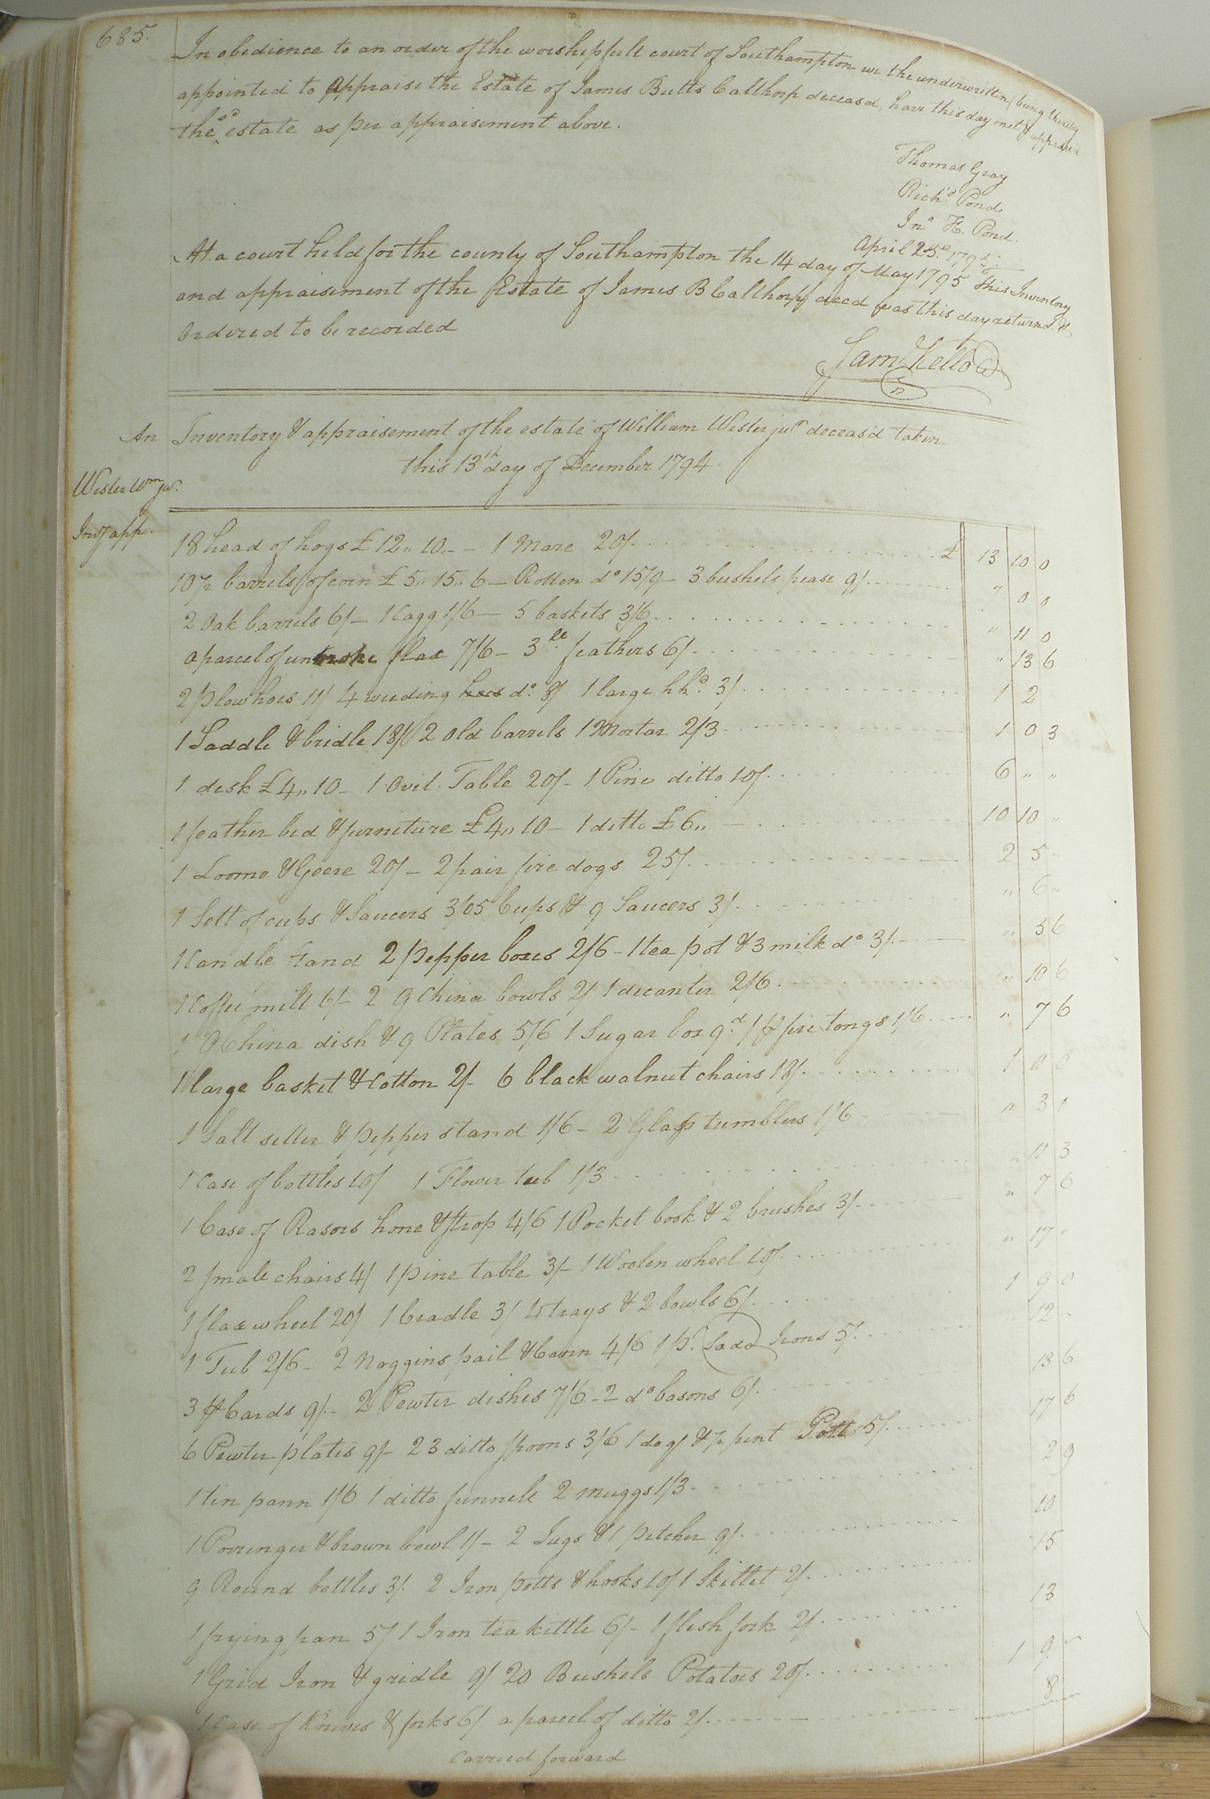 685.
In obedience to an order of the worshipfull court of Southampton we the underwritten (being thereby
appointed to appraise the Estate of James Butts Calthorp deceasd, have this day met & appraised
the sd estate as per appraisement above.
Thomas Gray
Richd Pond
Jno H. Pond.
April 25th 1795
At a court held for the county of Southampton the 14 day of May 1795 This Inventory
and appraisement of the Estate of James B Calthorp decd was this day returnd. &
Ordered to be recorded
Sam Kello
An Inventory & appraisement of the estate of William Wester jur deceasd taken
this 13th day of December 1794
Wester Wm jur.
Invy app.
18 head of hogs £12,, 10 - - 1 Mare 20/. £ 13 10 0
10½ barrels of corn £5,, 15,, 6 - Rotten do 15/9 - 3 bushels pease 9/. " 0 0
2 Oak barrels 6/ - 1 Kagg 1/6 - 5 baskets 3/6 " 11 0
a parcel of unbroke flax 7/6 - 3 lb feathers 6/. " 13 6
2 plow hoes 11/ 4 weeding hoes do 8/ 1 large hhd 3/. 1 2
1 Saddle & bridle 18/ 2 old barrels 1 Mortar 2/3 1 0 3
1 desk £4,, 10 - 1 Ovil Table 20/ - 1 Pine ditto 10/. 6 " "
1 feather bed & furniture £4,, 10 - 1 ditto £6,, 10 10 "
1 Loome & Geere 20/ - 2 pair fire dogs 25/. 2 5
1 Sett of cups & Saucers 3/ 5 Cups & 9 Saucers 3/. " 6 "
1 Candle stand 2 Pepper boxes 2/6 - 1 tea pot & 3 milk do 3/. " 5 6
1 Coffee mill 6/ - 2 China bowls 2/ 1 decanter 2/6 " 10 6
1 China dish & 9 Plates 5/6 1 Sugar box 9d 1 pr fire tongs 1/6 " 7 6
1 large basket & Cotton 2/- 6 black walnut chairs 18/. 1 0 0
1 Salt seller & Pepper stand 1/6 - 2 Glass tumblers 1/6 " 3 0
1 Case of bottles 10/ 1 Flower tub 1/3 11 3
1 Case of Rasors hone & strop 4/6 1 Pocket book & 2 brushes 3/. " 7 6
2 smale chairs 4/ 1 pine table 3/- 1 Woolen wheel 10/. " 17 "
1 flax wheel 20/ 1 Cradle 3/ 4 trays & 2 bowls 6/. 1 9 0
1 Tub 2/6 - 2 Noggins pail & Cann 4/6 1 pr. Sadd Irons 5/. 12
3 pr Cards 9/. - 2 Pewter dishes 7/6 - 2 do basons 6/. 13 6
6 Pewter plates 9/ - 23 ditto spoons 3/6 1 & ½ pint Pott 5/. 17 6
1 tin pann 1/6 1 ditto funnele 2 muggs 1/3. 2 9
1 Porringer & brown bowl 1/ - 2 Jugs & 1 pitcher 9/. 10
9 Round bottles 3/. 2 Iron potts & hooks 10/ 1 Skillet 2/. 15
1 frying pan 5/ 1 Iron tea kittle 6/ - 1 flesh fork 2/. 13
1 Grid Iron & gridle 9/ 20 Bushels Potatoes 20/. 1 9
1 Case of Knives & forks 6/ a parcel of ditto 2/. 8
Carried forward